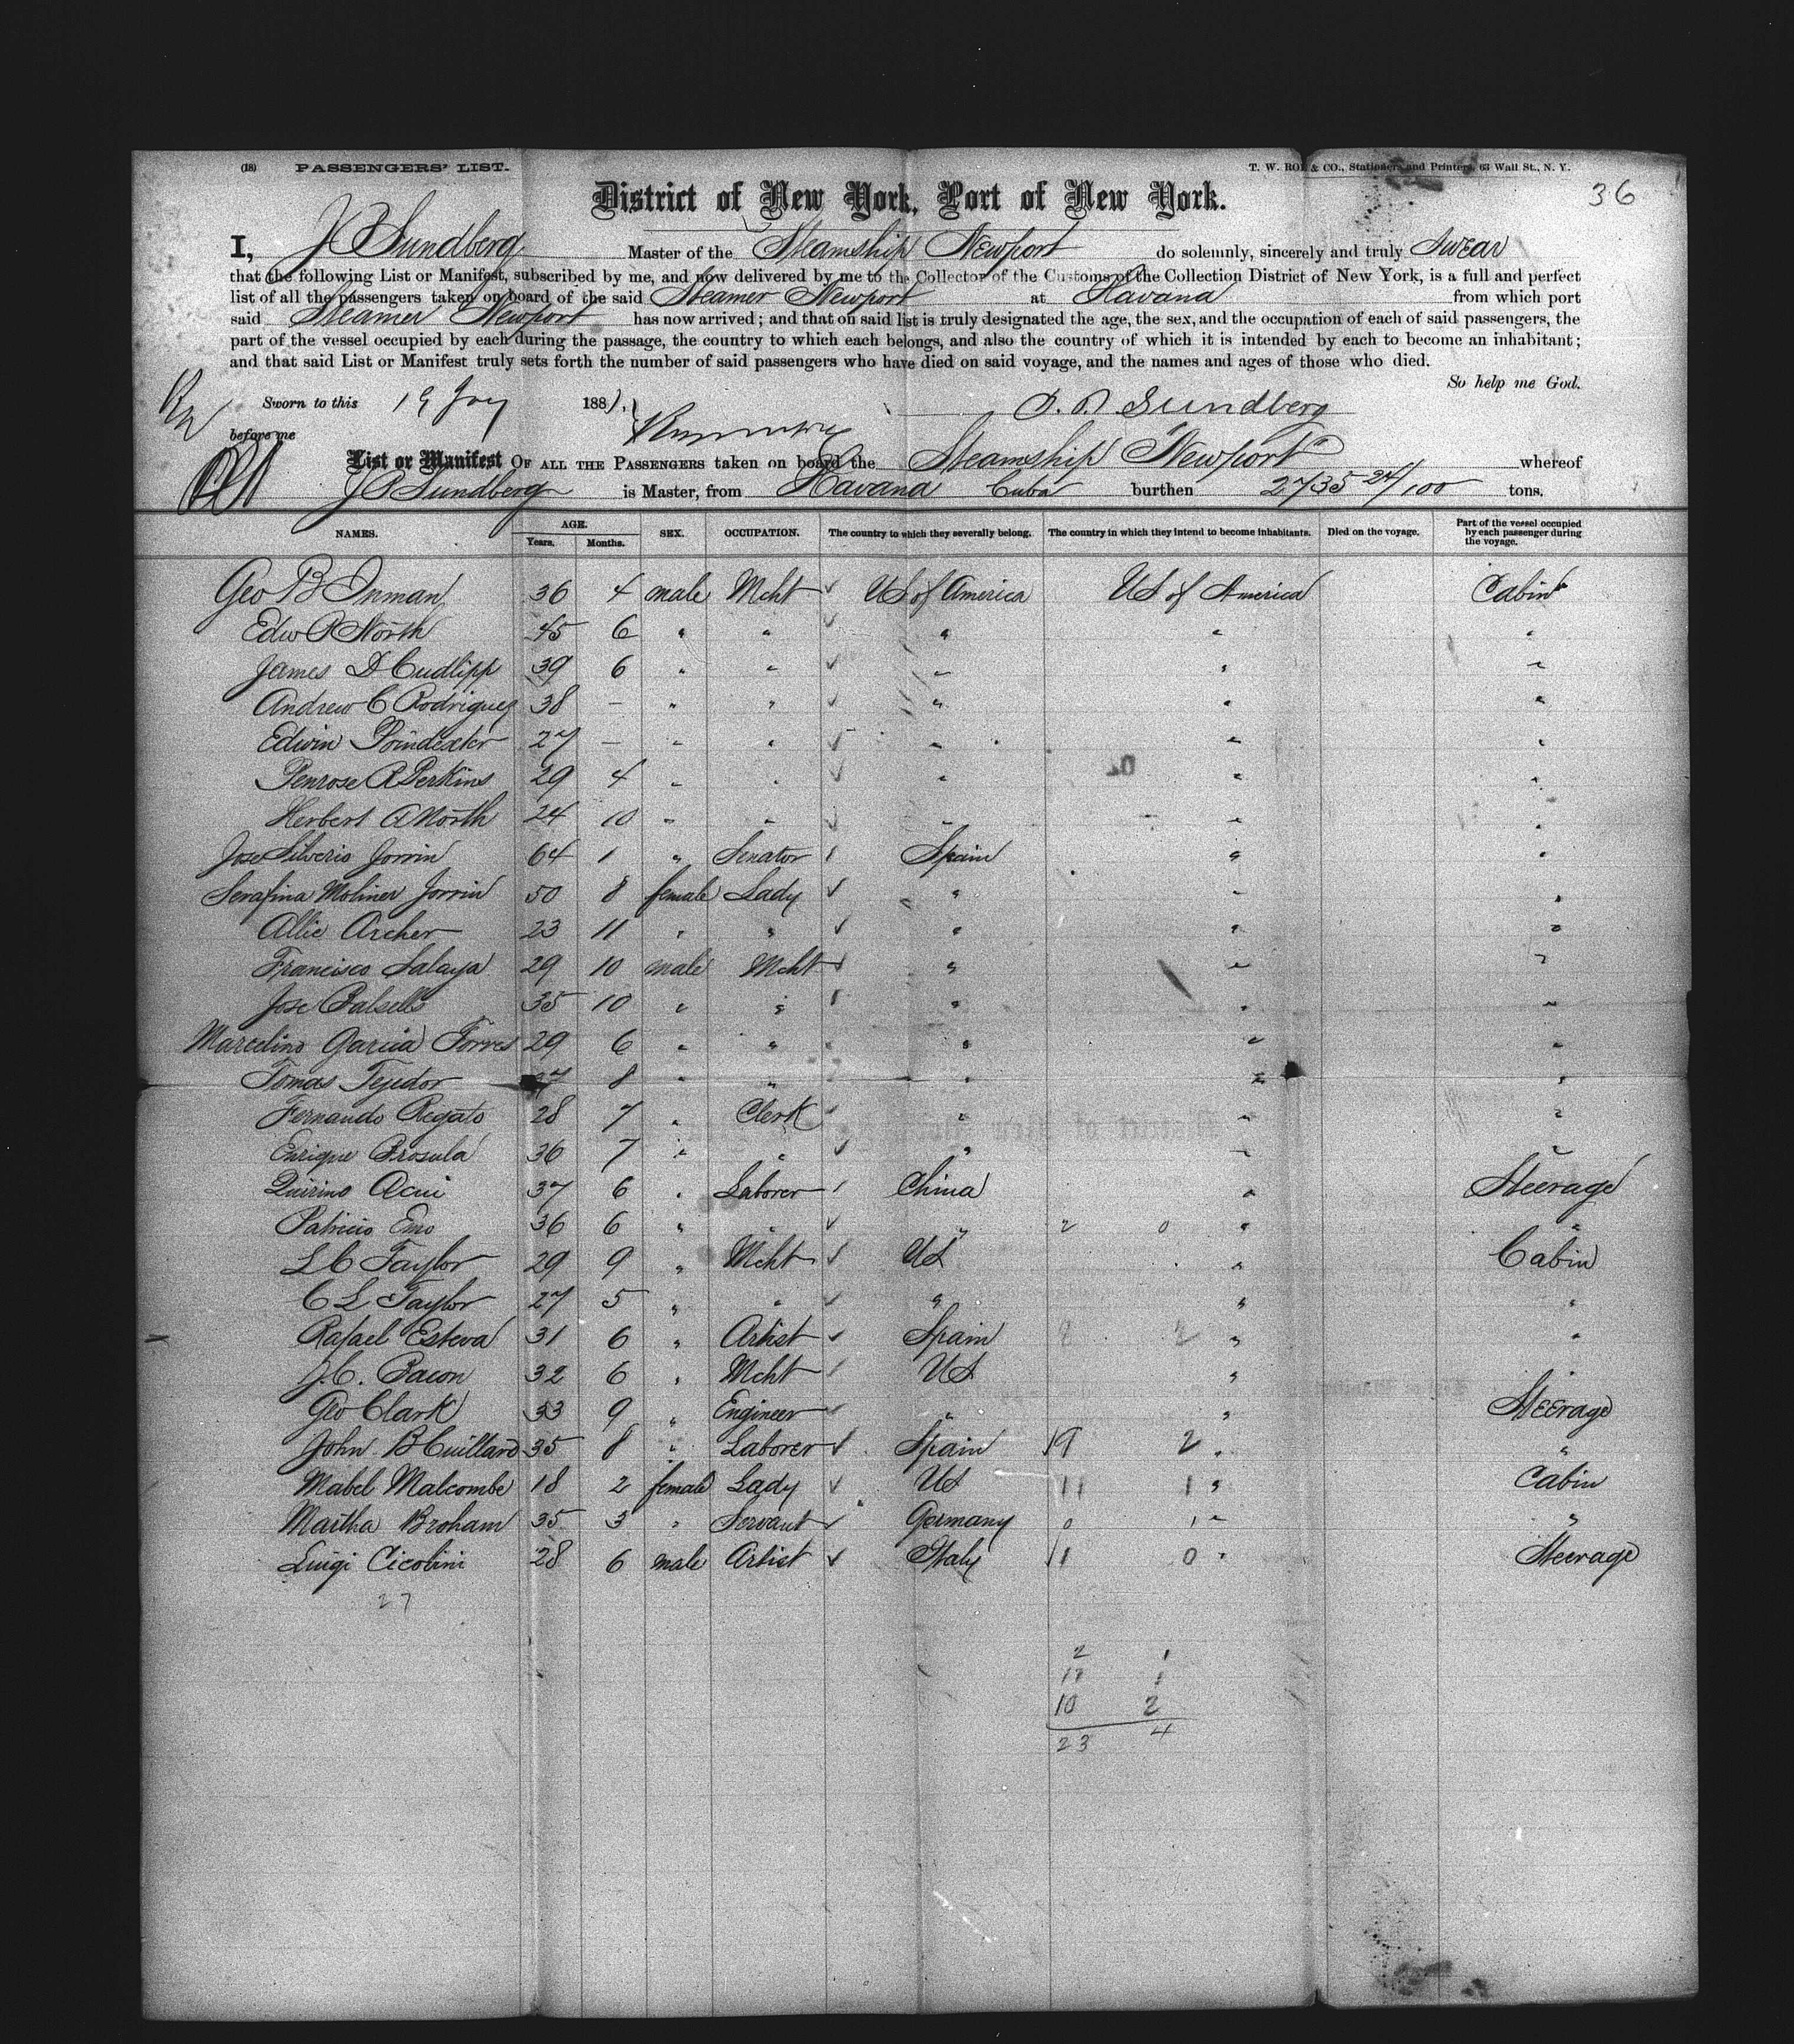 (18) PASSENGERS' LIST. T. W. ROE & CO., Stationers and Printers, 63 Wall St., N. Y.
District of New York, Port of New York. 36
I, J P Sundberg Master of the Steamship Newport do solemnly, sincerely and truly swear
that the following List or Manifest, subscribed by me, and now delivered by me to the Collector of the Customs of the Collection District of New York, is a full and perfect
list of all the passengers taken on board of the said Steamer Newport at Havana from which port
said Steamer Newport has now arrived; and that on said list is truly designated the age, the sex, and the occupation of each of said passengers, the
part of the vessel occupied by each during the passage, the country to which each belongs, and also the country of which it is intended by each to become an inhabitant;
and that said List or Manifest truly sets forth the number of said passengers who have died on said voyage, and the names and ages of those who died.
So help me God.
Sworn to this 19 Jay 1881. J. P. Sundberg
before me
List or Manifest OF ALL THE PASSENGERS taken on board the Steamship Newport whereof
J P Sundberg is Master, from Havana Cuba burthen 2735 24/100 tons.
NAMES. AGE. Years. Months. SEX. OCCUPATION. The country to which they severally belong. The country in which they intend to become inhabitants. Died on the voyage. Part of the vessel occupied by each passenger during the voyage.
Geo B Inman 36 4 male Mcht US of America US of America Cabin
Edw P North 45 6 " " " " "
James D Cudlipp 39 6 " " " " "
Andrew C Rodriguez 38 – " " " " "
Edwin Poindexter 27 – " " " " "
Penrose R Perkins 29 4 " " " " "
Herbert A North 24 10 " " " " "
Jose Silverio Jorrin 64 1 " Senator Spain " "
Serafina Moliner Jorrin 50 8 female Lady " " "
Allie Archer 23 11 " " " " "
Francisco Salaya 29 10 male Mcht " " "
Jose Balsells 35 10 " " " " "
Marcelino Garcia Torres 29 6 " " " " "
Tomas Tejedor 27 8 " " " " "
Fernando Regato 28 7 " Clerk " " "
Enrique Brosula 36 7 " " " " "
Quirino Acui 37 6 " Laborer China " Steerage
Patricio Emo 36 6 " " " 2 0 " "
L C Taylor 29 9 " Mcht US " Cabin
C L Taylor 27 5 " " " " "
Rafael Esteva 31 6 " Artist Spain 8 2 " "
J. C. Bacon 32 6 " Mcht US " "
Geo Clark 33 9 " Engineer " " Steerage
John B Cuillard 35 8 " Laborer Spain 19 2 " "
Mabel Malcombe 18 2 female Lady US 11 1 " Cabin
Martha Broham 35 3 " Servant Germany 0 1 " "
Luigi Cicolini 28 6 male Artist Italy 1 0 " Steerage
27
2 1
11 1
10 2
23 4